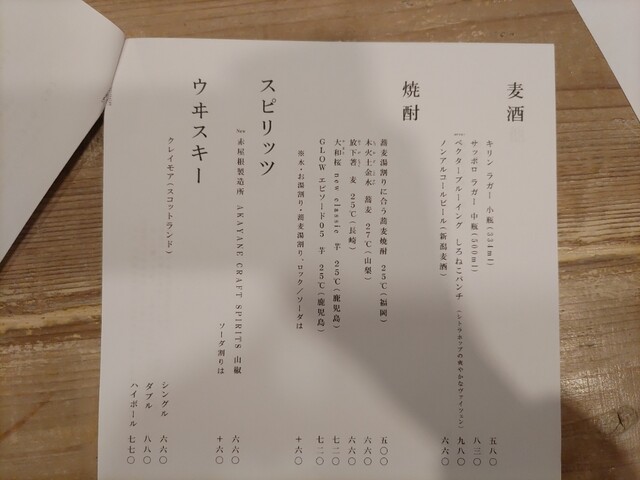 麦酒
キリン ラガー 小瓶（334ml） 五八〇
サッポロ ラガー 中瓶（500ml） 八三〇
ベクターブルーイング しろねこパンチ（シトラホップの爽やかなヴァイツェン） 九八〇
ノンアルコールビール（新潟麦酒） 六六〇
焼酎
蕎麦湯割りに合う蕎麦焼酎 25℃（福岡） 五〇〇
木火土金水 蕎麦 27℃（山梨） 六六〇
放下著 麦 25℃（長崎） 六六〇
大和桜 new classic 芋 25℃（鹿児島） 七二〇
GLOW エピソード05 芋 25℃（鹿児島） 七二〇
※水・お湯割り・蕎麦湯割り、ロック／ソーダは ＋六〇
スピリッツ
New 赤屋根製造所 AKAYANE CRAFT SPIRITS 山椒 六六〇
ソーダ割りは ＋六〇
ウヰスキー
クレイモア（スコットランド）
シングル 六六〇
ダブル 八八〇
ハイボール 七七〇